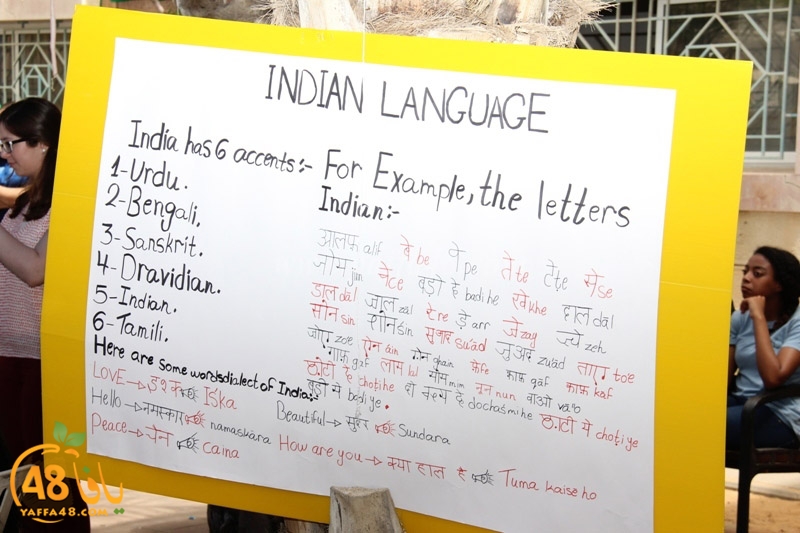 INDIAN LANGUAGE
India has 6 accents:-
1-Urdu.
2-Bengali.
3-Sanskrit.
4-Dravidian.
5-Indian.
6-Tamili.
For Example, the letters
Indian:-
आलफ़ alif बे be पे pe ते te टे te से se
जीम jim चे ce बड़ी हे badi he खे khe दाल dal
डाल dal ज़ाल zal रे re ड़े arr ज़े zay zeh
सीन sin शीन sin सुआद suad ज़ुआद zuad toe
zoe ऐन ain ghain फ़े fe काफ़ gaf काफ़ kaf
गाफ़ gaf लाम lal मीम mim नून nun वाओ vao
छोटी हे chotihe dochasmihe छोटी ये chotiye
बड़ी ये badiye.
Here are some words dialect of India:-
LOVE → इश्क Iska
Hello → नमस्कार namaskara
Beautiful → Sundara
Peace → चैन caina
How are you → क्या हाल है Tuma kaise ho
48 يافا
YAFFA48.COM